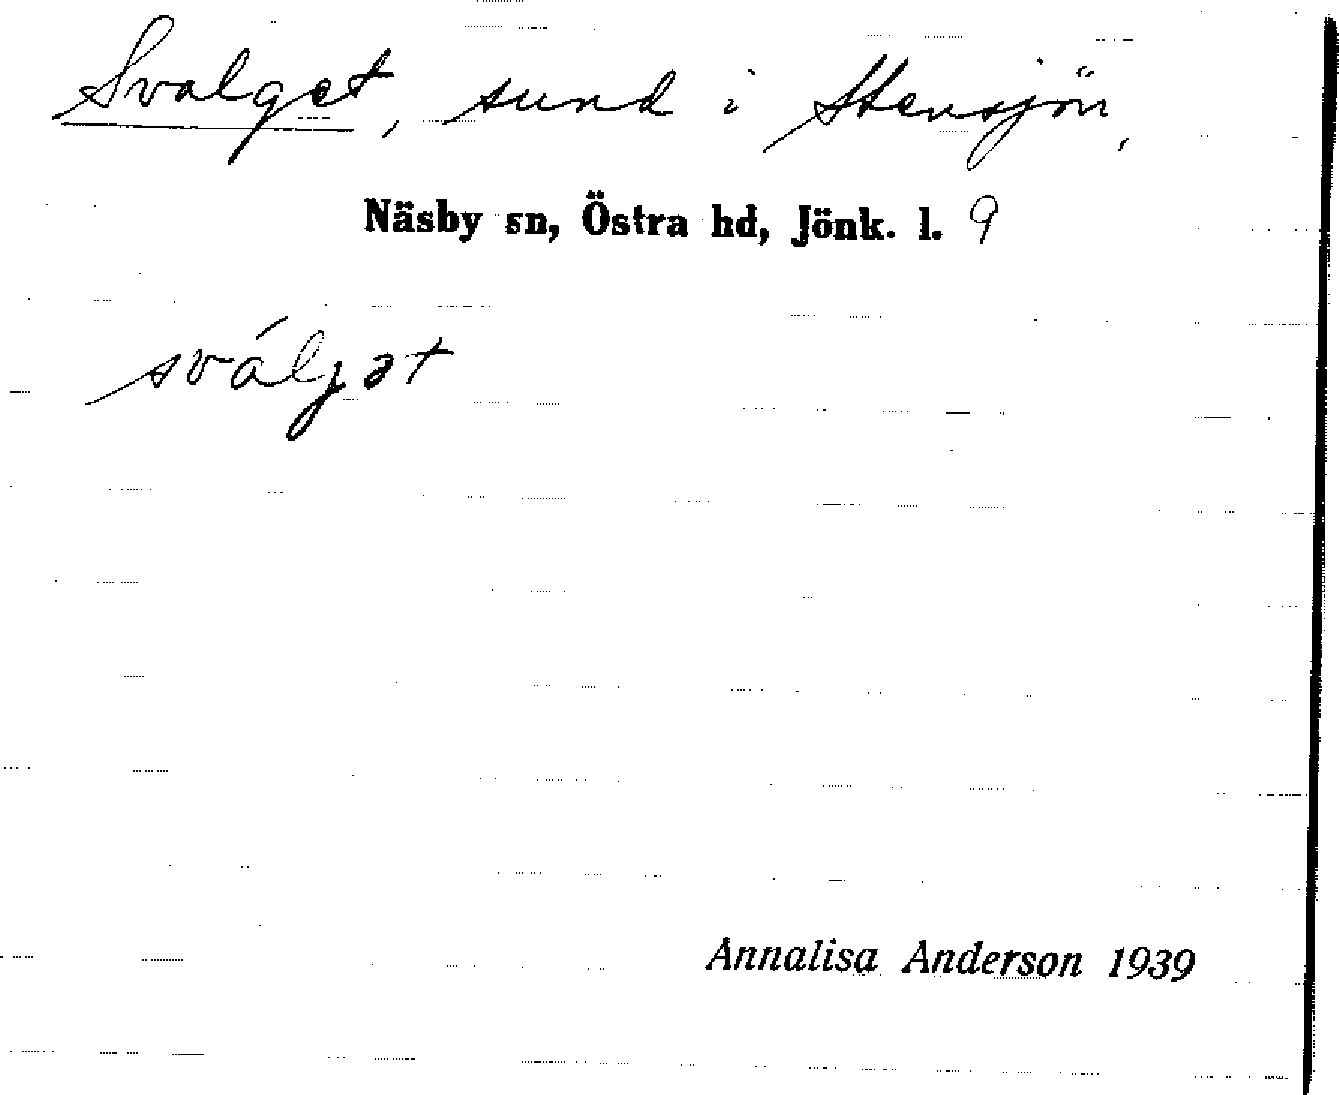 Svalget, sund i Stensjön,
Näsby sn, Östra hd, Jönk. l. 9
sváljət
Annalisa Anderson 1939